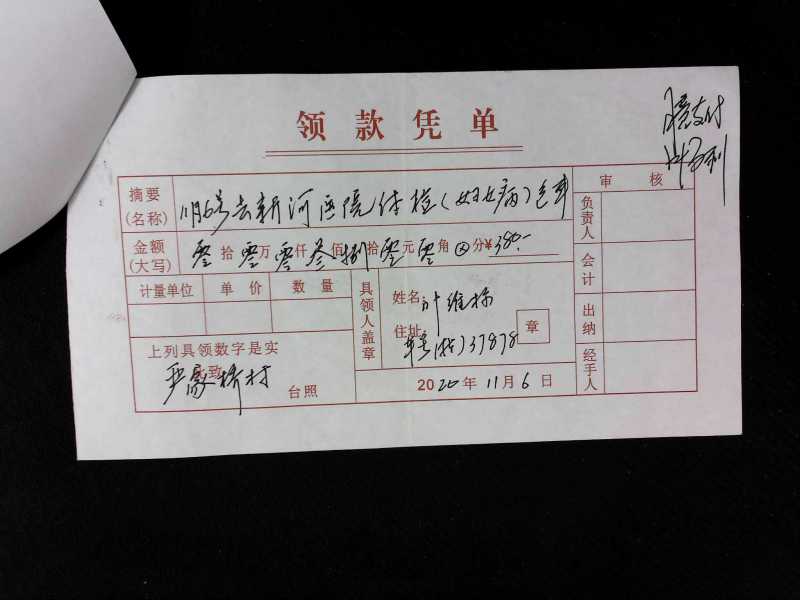 领款凭单
同意支付
摘要
(名称)
11月6号去新河医院体检(妇女病)包车
审核
负责人
金额
(大写)
零拾零万零仟叁佰捌拾零元零角⊗分¥380.-
会计
计量单位 单价 数量
具领人盖章
姓名 叶维标
住址
车号 37878
章
出纳
上列具领数字是实
此致
严家桥村
台照
2020年11月6日
经手人